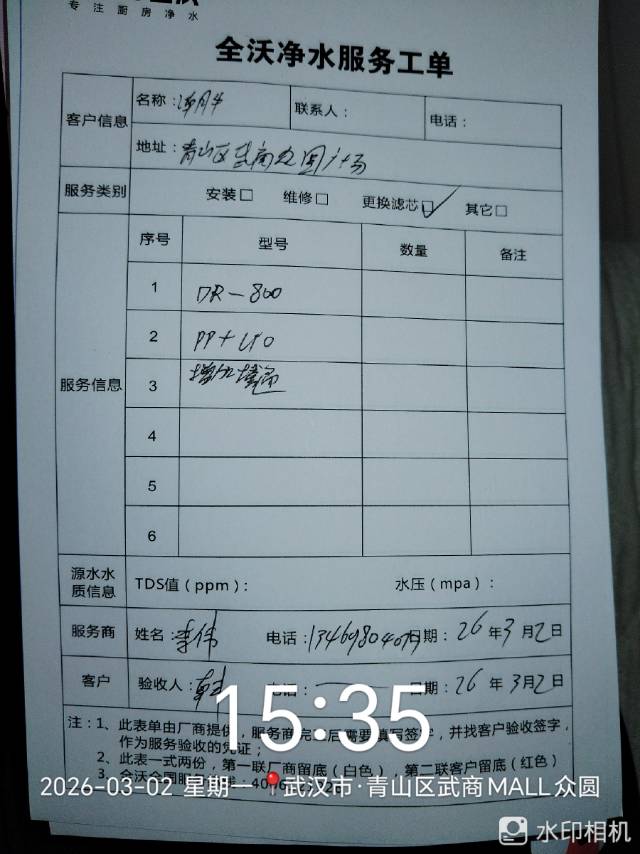 专注厨房净水
全沃净水服务工单
客户信息
名称：
联系人：
电话：
地址：青山区武商众圆广场
服务类别
安装□ 维修□ 更换滤芯☑ 其它□
服务信息
序号 型号 数量 备注
1 DR-800
2 PP+UO
3
4
5
6
源水水质信息
TDS值（ppm）： 水压（mpa）：
服务商 姓名：李伟 电话： 日期：26年3月2日
客户 验收人： 电话： 日期：26年3月2日
注：1、此表单由厂商提供，服务商完工后需要填写签字，并找客户验收签字，
作为服务验收的凭证；
2、此表一式两份，第一联厂商留底（白色），第二联客户留底（红色）
3、全沃全国服务
15:35
2026-03-02 星期一 武汉市·青山区武商MALL众圆
水印相机